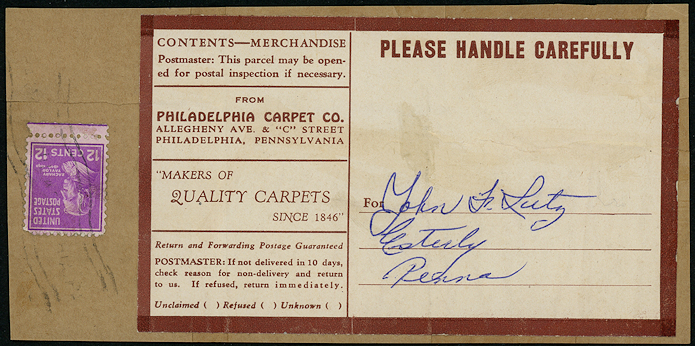 CONTENTS—MERCHANDISE
Postmaster: This parcel may be open-
ed for postal inspection if necessary.
FROM
PHILADELPHIA CARPET CO.
ALLEGHENY AVE. & "C" STREET
PHILADELPHIA, PENNSYLVANIA
"MAKERS OF
QUALITY CARPETS
SINCE 1846"
Return and Forwarding Postage Guaranteed
POSTMASTER: If not delivered in 10 days,
check reason for non-delivery and return
to us. If refused, return immediately.
Unclaimed ( ) Refused ( ) Unknown ( )
PLEASE HANDLE CAREFULLY
For John F. Lutz
Esterly
Penna
UNITED
STATES
POSTAGE
ZACHARY
TAYLOR
12 CENTS 12